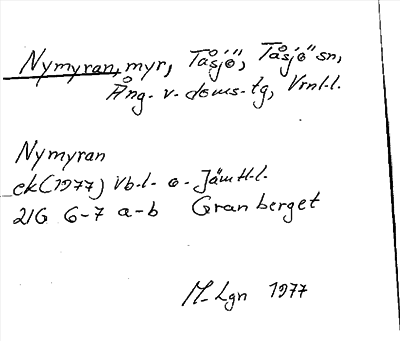 Nymyran, myr, Tåsjö, Tåsjö sn,
Ång. v. doms-tg, Vrnl.l.
Nymyran
ek (1977) Vb.l. o. Jämtl.l.
21G 6-7 a-b Granberget
M-Lgn 1977